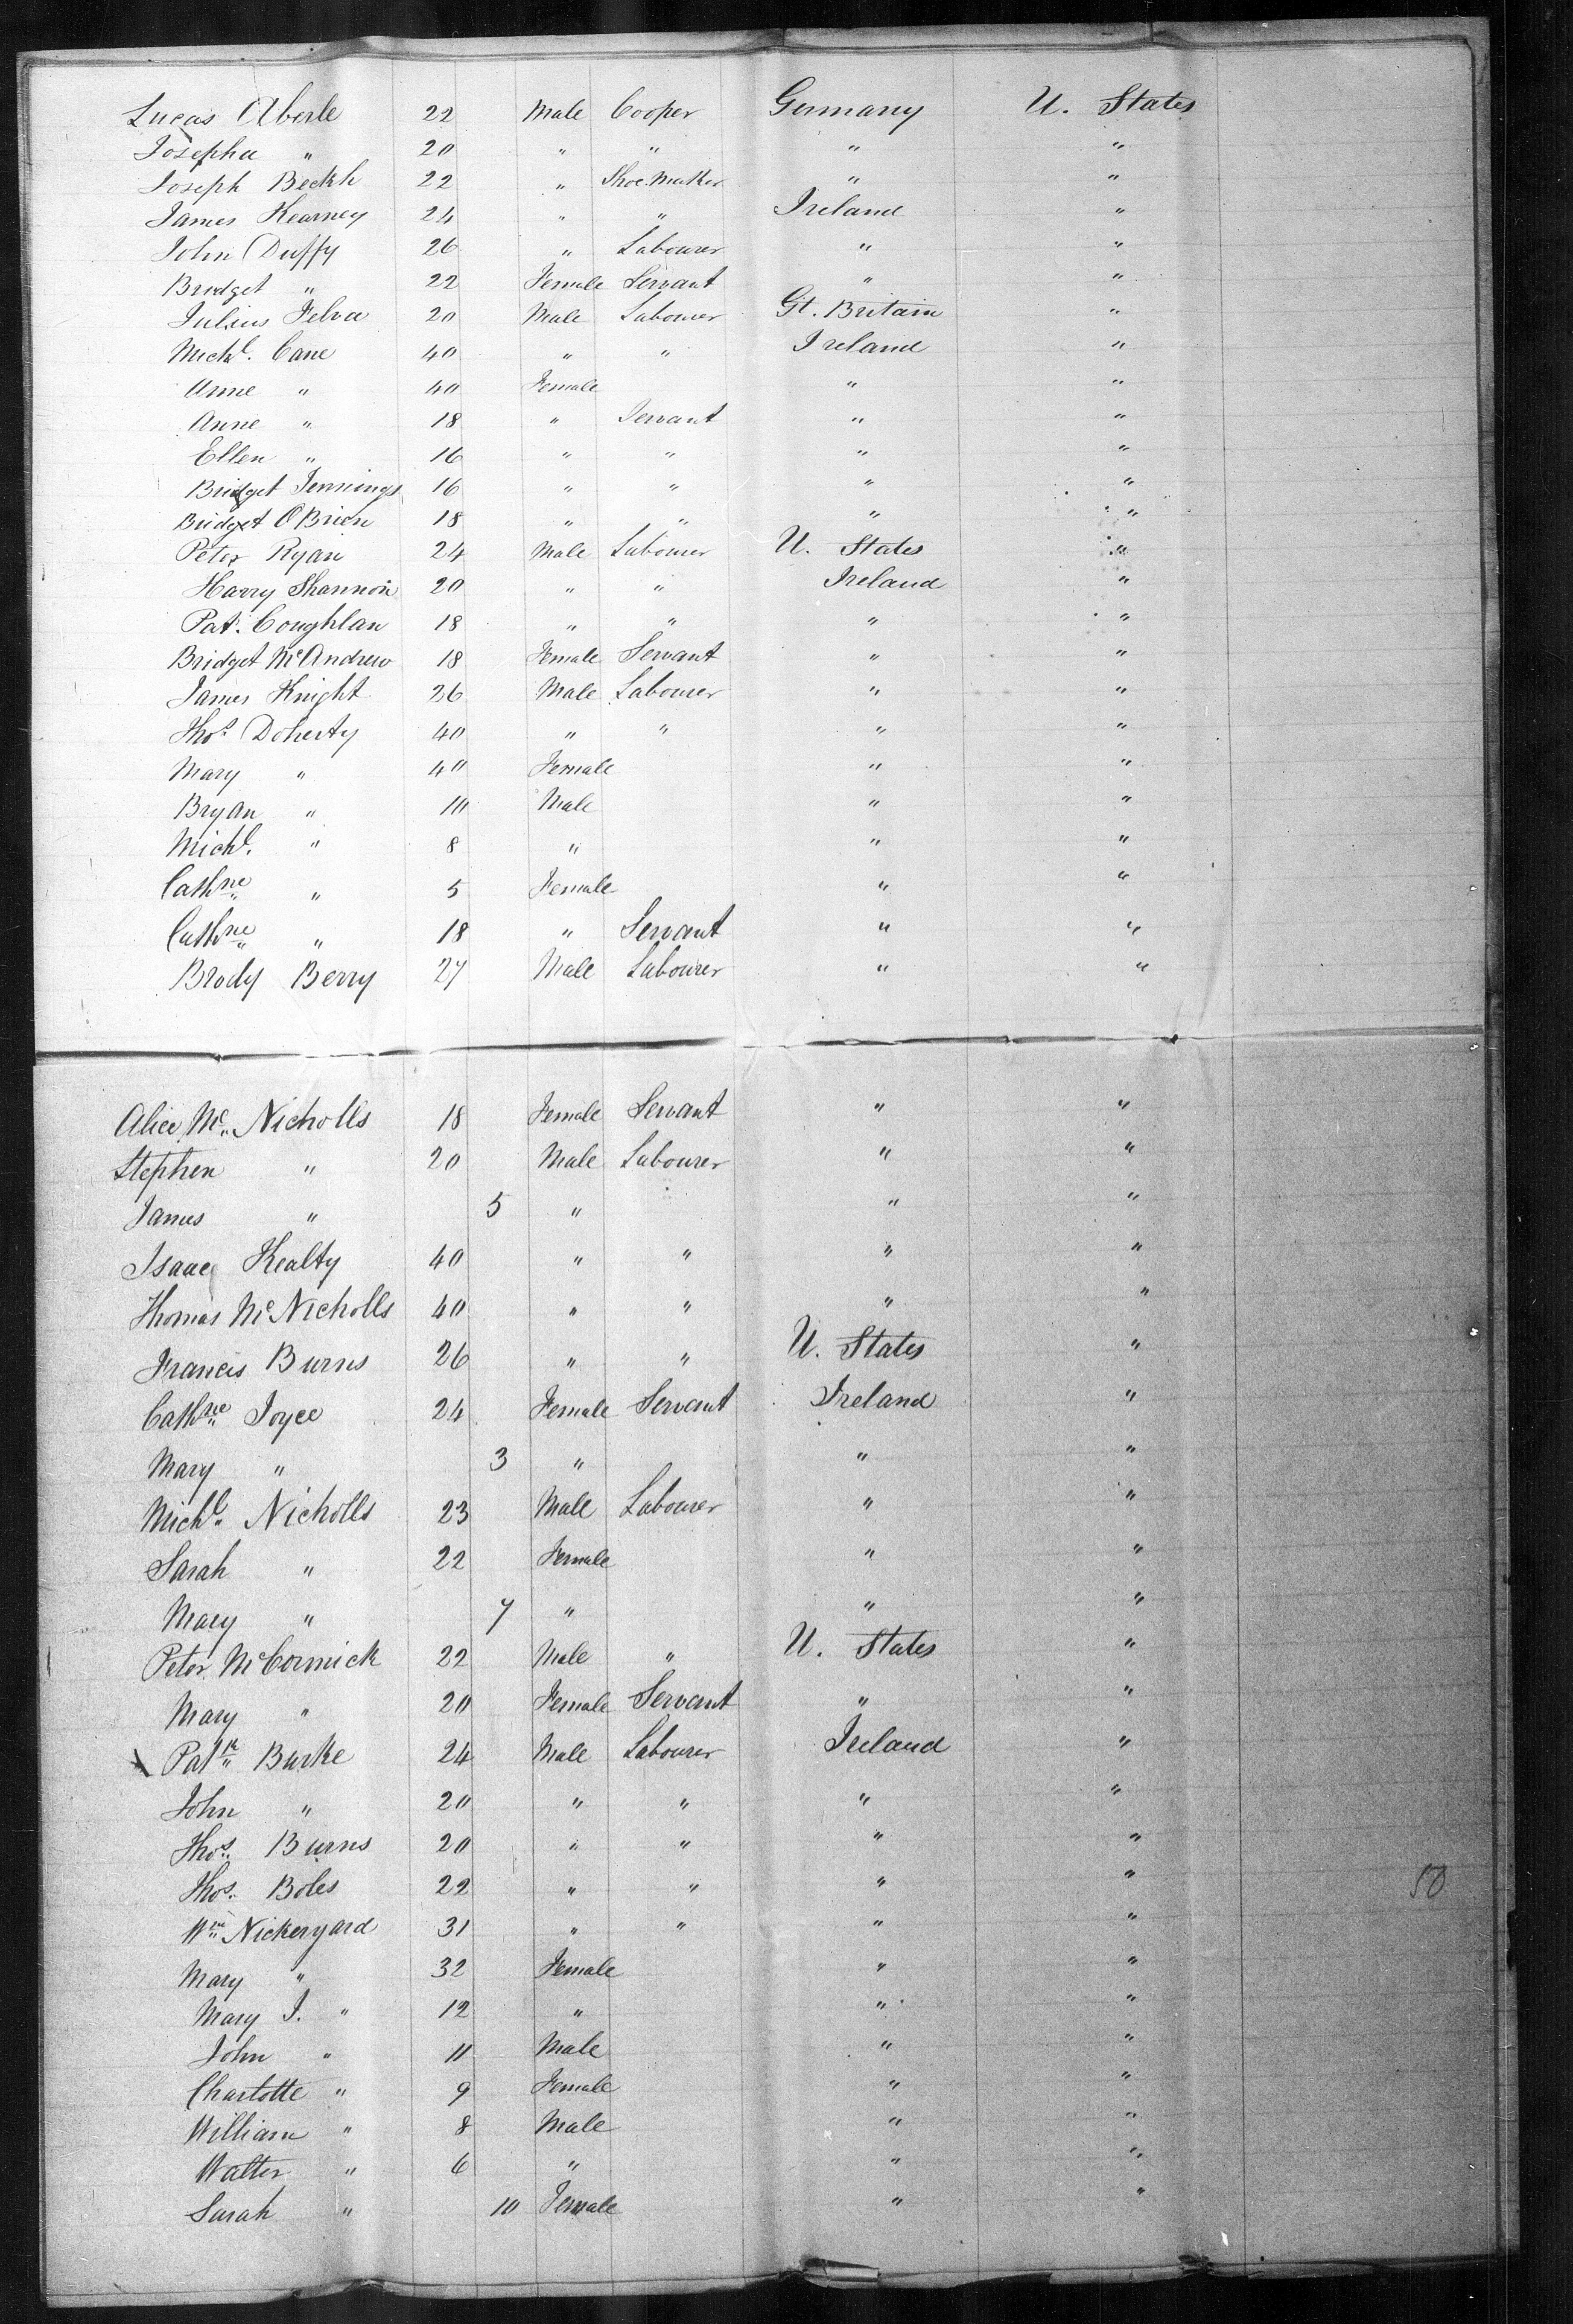 Lucas Aberle 22 Male Cooper Germany U. States
Josepha " 20 " " " "
Joseph Beckh 22 " Shoe Maker " "
James Kearney 24 " " Ireland "
John Duffy 26 " Labourer " "
Bridget " 22 Female Servant " "
Julius Felva 20 Male Labourer Gt. Britain "
Michl. Cane 40 " " Ireland "
Anne " 40 Female " "
Anne " 18 " Servant " "
Ellen " 16 " " " "
Bridget Jennings 16 " " " "
Bridget O Brien 18 " " " "
Peter Ryan 24 Male Labourer U. States "
Harry Shannon 20 " " Ireland "
Pat. Coughlan 18 " " " "
Bridget McAndrew 18 Female Servant " "
James Knight 26 Male Labourer " "
Thos. Doherty 40 " " " "
Mary " 40 Female " "
Bryan " 10 Male " "
Michl. " 8 " " "
Cathne " 5 Female " "
Cathne " 18 " Servant " "
Brody Berry 27 Male Labourer " "
Alice Mc Nicholls 18 Female Servant " "
Stephen " 20 Male Labourer " "
James " 5 " " "
Isaac Kealty 40 " " " "
Thomas McNicholls 40 " " " "
Francis Burns 26 " " U. States "
Cathne Joyce 24 Female Servant Ireland "
Mary " 3 " " "
Michl. Nicholls 23 Male Labourer " "
Sarah " 22 Female " "
Mary " 7 " " "
Peter McCormick 22 Male " U. States "
Mary " 20 Female Servant " "
Patk Burke 24 Male Labourer Ireland "
John " 20 " " " "
Thos. Burns 20 " " " "
Thos. Boles 22 " " " "
50
Wm Nickeryard 31 " " " "
Mary " 32 Female " "
Mary J. " 12 " " "
John " 11 Male " "
Charlotte " 9 Female " "
William " 8 Male " "
Walter " 6 " " "
Sarah " 10 Female " "